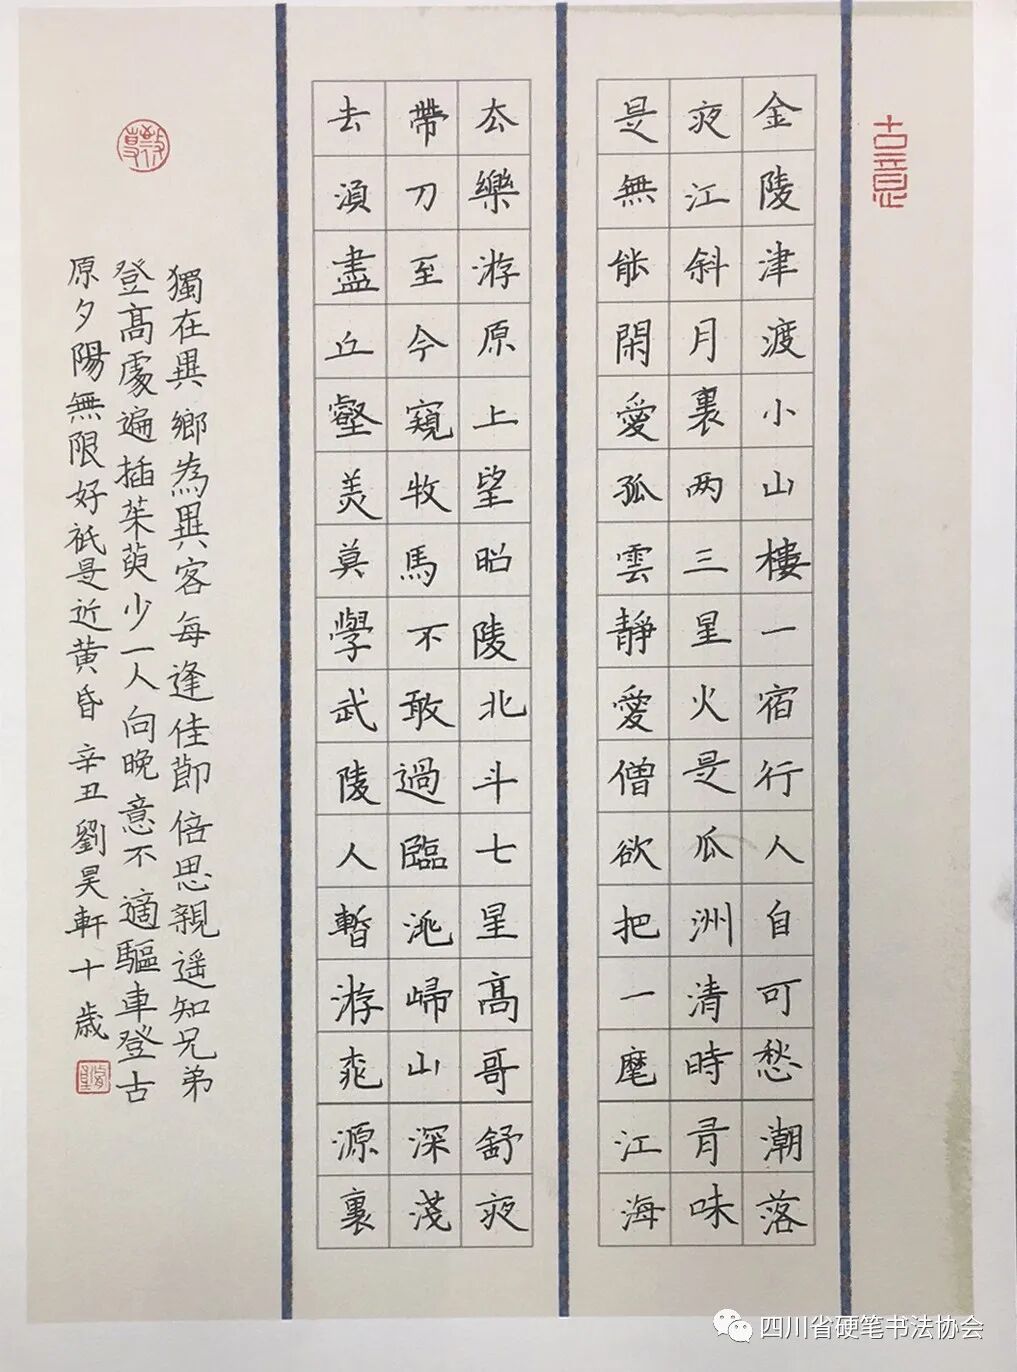 古意
金陵津渡小山樓一宿行人自可愁潮落
夜江斜月裏两三星火是瓜洲清時有味
是無能閑愛孤雲靜愛僧欲把一麾江海
厺樂游原上望昭陵北斗七星高哥舒夜
帶刀至今窺牧馬不敢過臨洮歸山深淺
去須盡丘壑美莫學武陵人暫游桃源裏
獨在異鄉為異客每逢佳節倍思親遥知兄弟
登高處遍插茱萸少一人向晚意不適驅車登古
原夕陽無限好祇是近黄昏 辛丑劉昊軒十歲
四川省硬笔书法协会